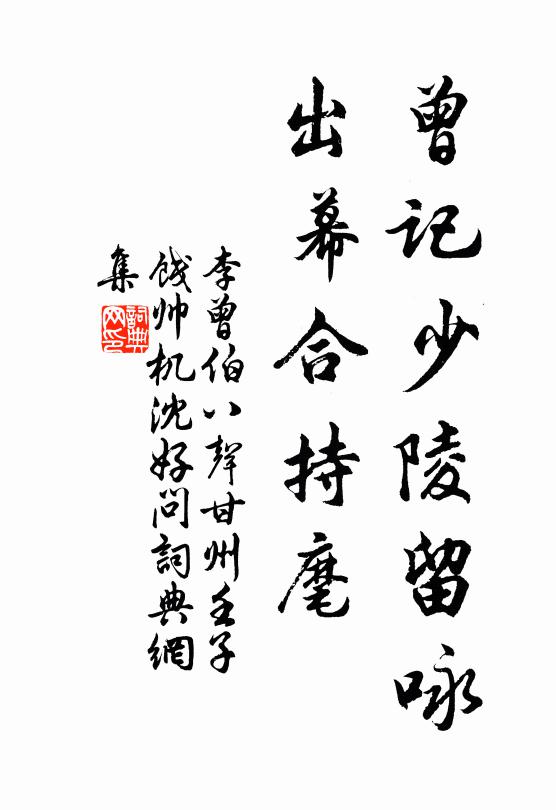 曾记少陵留咏
出幕合持麾
李曾伯八聲甘州壬子
饯帅机沈好问詞典網
集
詞典网印